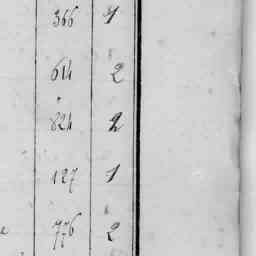 366 1
614 2
824 2
127 1
776 2